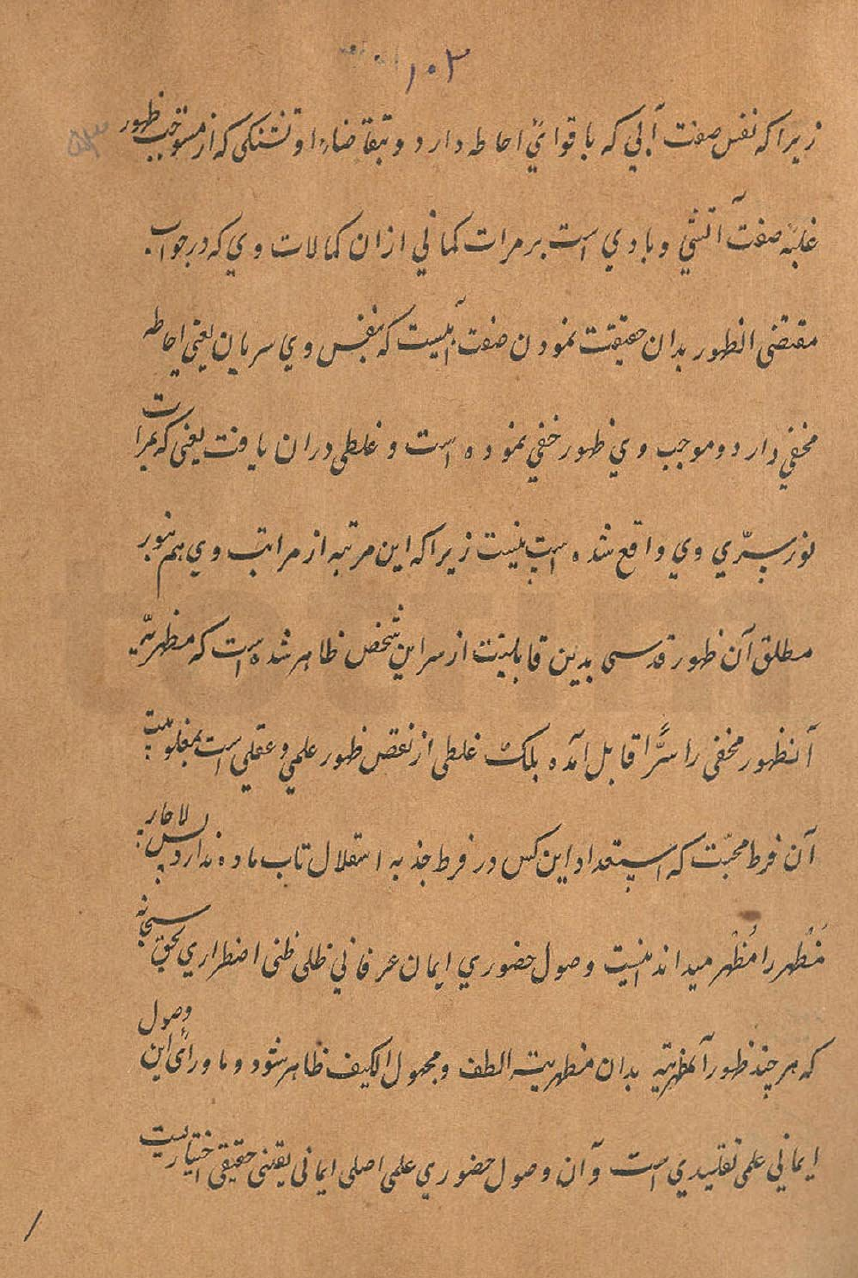 ۱۰۳
۵۳
زیرا که نفس صفت آبی که با قوای احاطه دارد و بتقاضاء او تشنگی که از مستوجب ظهور
غلبهٔ صفت آتشی و بادی است بر مرات کمانی ازان کمالات وی که در جواب
مقتضی الظهور بدان حقیقت نمودن صفت که بنفس وی سریان یعنی احاطه
مخفی دارد و موجب وی ظهور خفی نموده است و غلطی دران یافت یعنی که بمرات
نور سرّی وی واقع شده است نیست زیرا که این مرتبه از مراتب وی هم بنور
مطلق آن ظهور قدسی بدین قابلیت از سر این شخص ظاهر شده است که مظهریّة
آنظهور مخفی را سرًّا قابل آمده بلک غلطی از نقص ظهور علمی و عقلی است بمغلوبیت
آن فرط محبّت که استعداد این کس در فرط جذبه استقلال تاب ماده ندارد پس لاچار
مُظهر را مُظهَر میداند اینست وصول حضوری ایمان عرفانی ظلی ظنی اضطراری بحق سبحانه
که هر چند ظهور آنمظهریة بدان مظهریت الطف و مجهول الکیف ظاهر شود و ماورای این وصول
ایمانی علمی تقلیدی است و آن وصول حضوری علمی اصلی ایمانی یقینی حقیقی اختیاریست